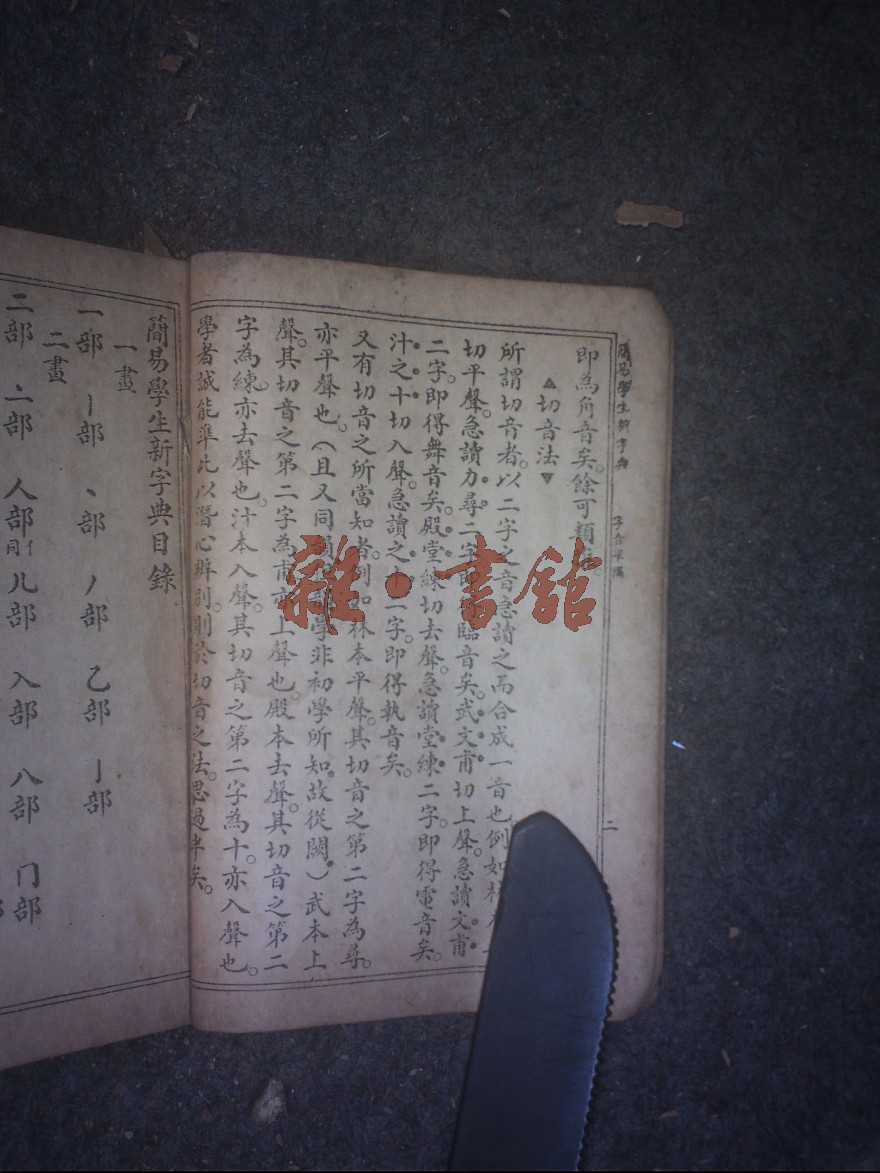 簡易學生新字典
二
即為角音矣。餘可類
▲切音法▼
所謂切音者。以二字之音急讀之而合成一音也例如
切平聲。急讀力尋二字即 臨音矣。武文甫切上聲。急讀文甫
二字。即得舞音矣。殿堂練切去聲。急讀堂練二字。即得電音矣。
汁之十切入聲。急讀之十二字。即得執音矣。
又有切音之所當知者。例如林本平聲。其切音之第二字為尋。
亦平聲也。(且又同韻 學非初學所知。故從闕。)武本上
聲。其切音之第二字為甫亦上聲也。殿本去聲。其切音之第二
字為練。亦去聲也。汁本入聲。其切音之第二字為十。亦入聲也。
學者誠能準比以潛心辨別。則於切音之法。思過半矣。
簡易學生新字典目錄
一畫
一部 丨部 丶部 丿部 乙部 亅部
二畫
二部 亠部 人部同亻 儿部 入部 八部 冂部
雜·書舘